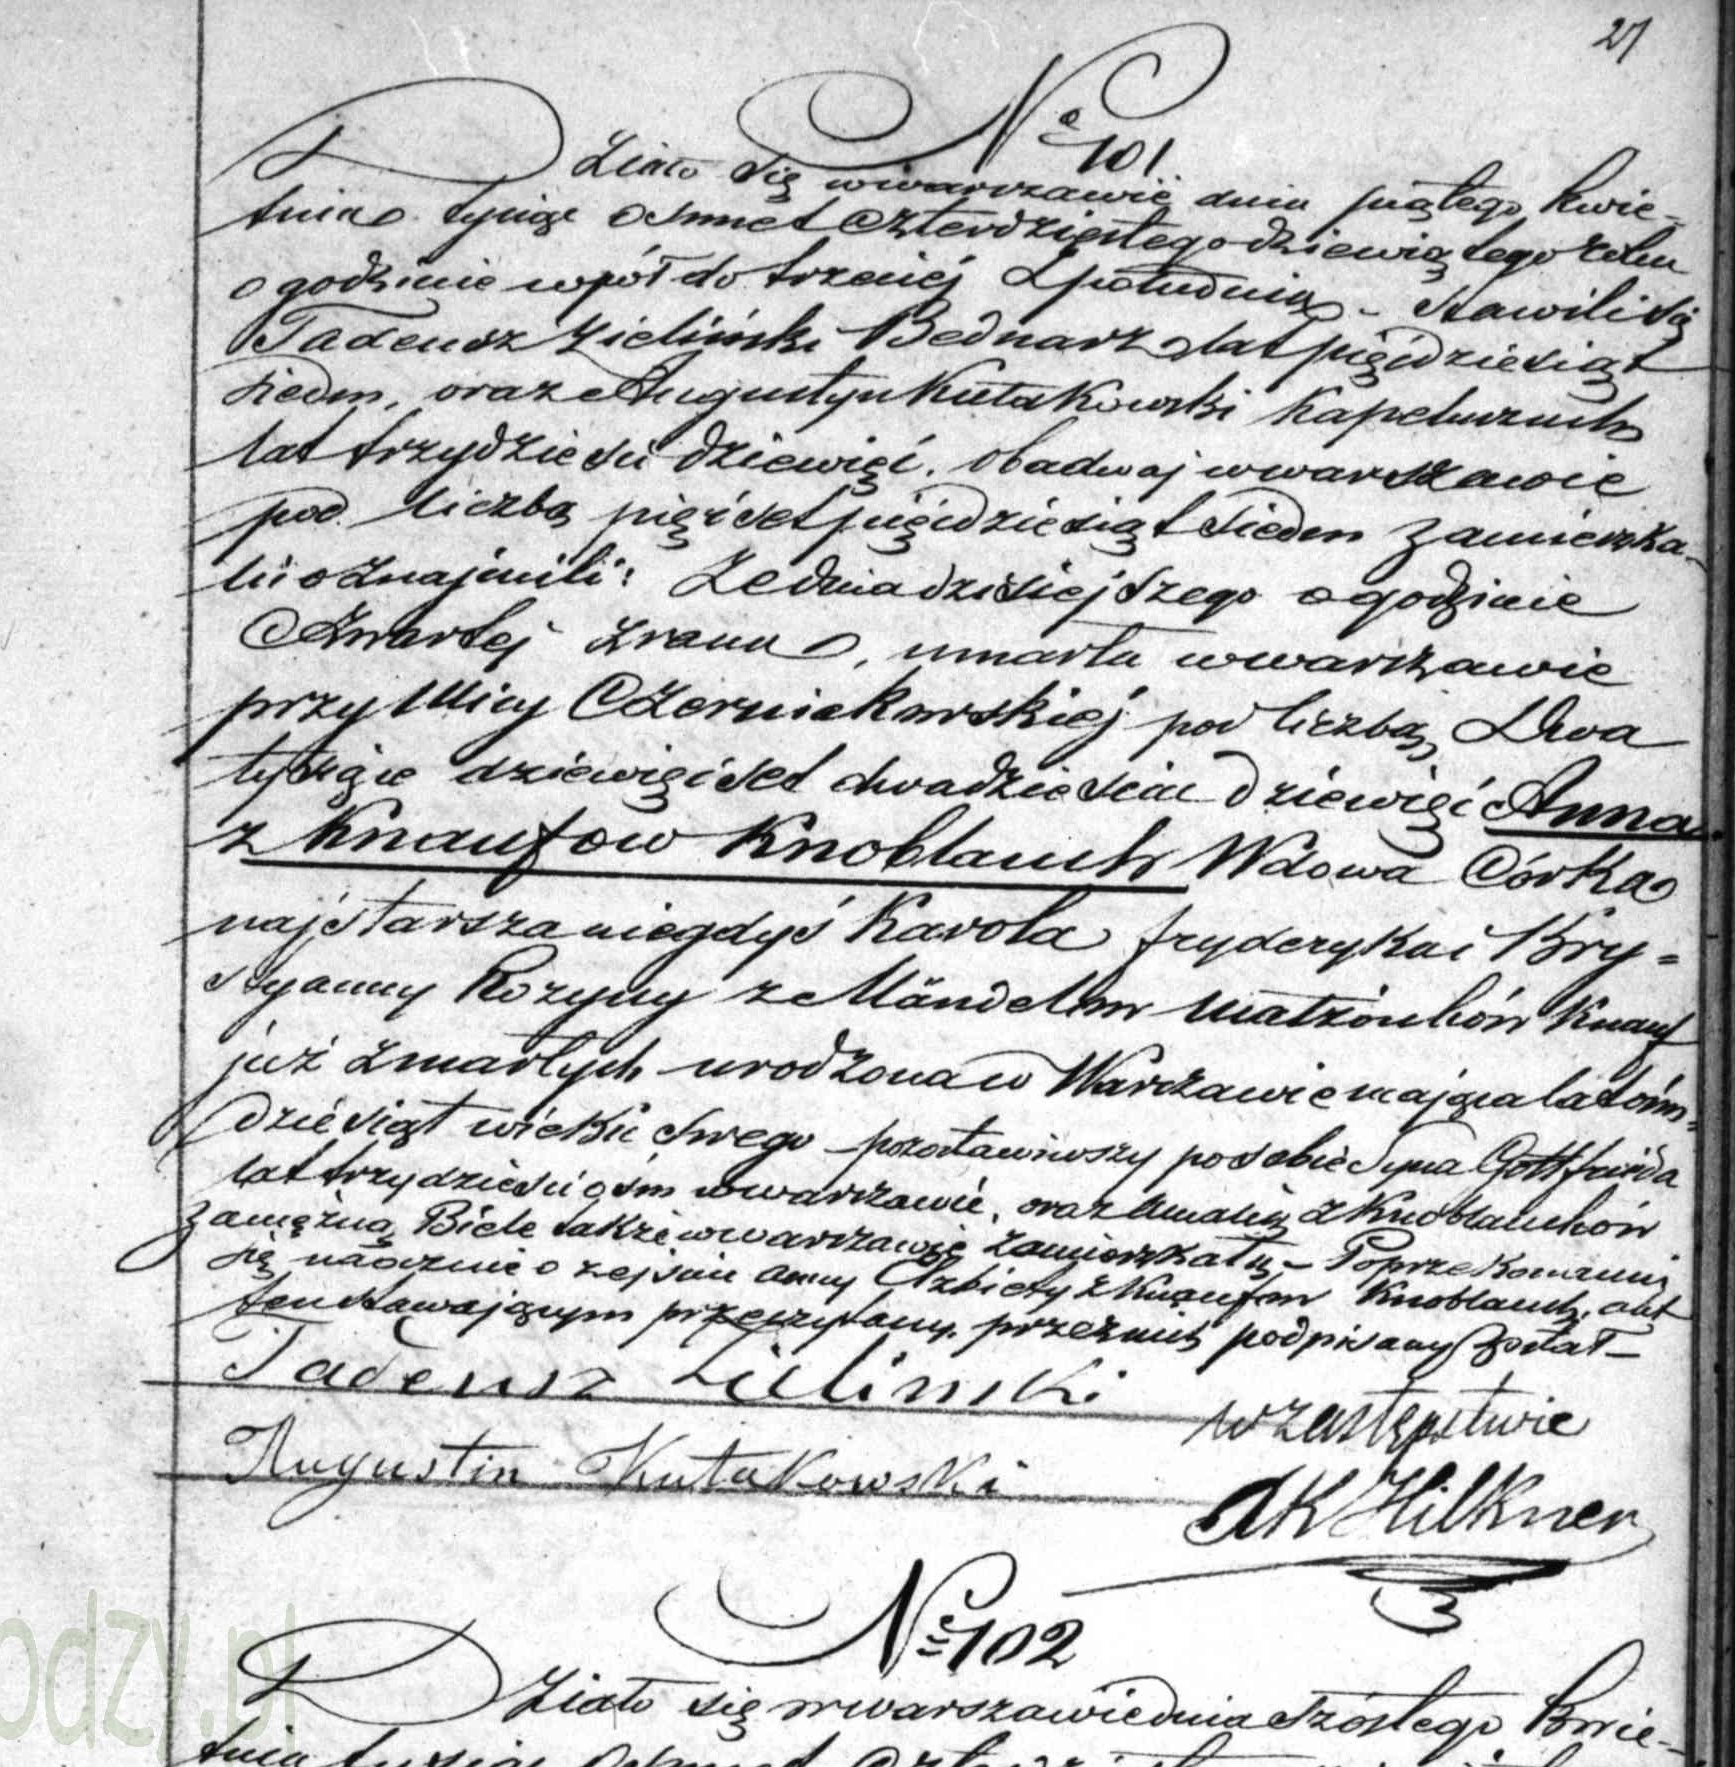 27
No 101
Działo się w warszawie dnia piątego kwie=
tnia tysiąc osmset czterdziestego dziewiątego roku
o godzinie wpół do trzeciej z południa - Stawili się
Tadeusz Zieliński Bednarz lat pięćdziesiąt
siedm, oraz Augustyn Kutakowski Kapelusznik
lat trzydzieści dziewięć, obadwaj w warszawie
pod liczbą pięćset pięćdziesiąt siedm zamieszka-
li i oznajmili: że dnia dzisiejszego o godzinie
Czwartej z rana, umarła w warszawie
przy Ulicy Czerniakowskiej pod liczbą Dwa
tysiące dziewięćset dwadzieścia dziewięć Anna
z Knaufow Knoblauch Wdowa Córka
najstarsza niegdyś Karola Fryderyka i Kry=
styanny Rozyny z Mändelow małżonków Knauf
już zmarłych urodzona w Warszawie mająca lat ośm=
dziesiąt wieku swego - pozostawiwszy po sobie Syna Gottfrieda
lat trzydzieści ośm w warszawie, oraz Amalią z Knoblauchów
zamężną Biele także w warszawie zamieszkałą - Po przekonaniu
się naocznie o zejściu Anny Elżbiety z Knaufow Knoblauch, akt
ten stawającym przeczytany, przez nich podpisany został -
Tadeusz Zielinski
w zastępstwie
Augustin Kutakowski
AK Hilkner
No 102
Działo się w warszawie dnia szóstego kwie-
tnia tysiąc
odzy.pl